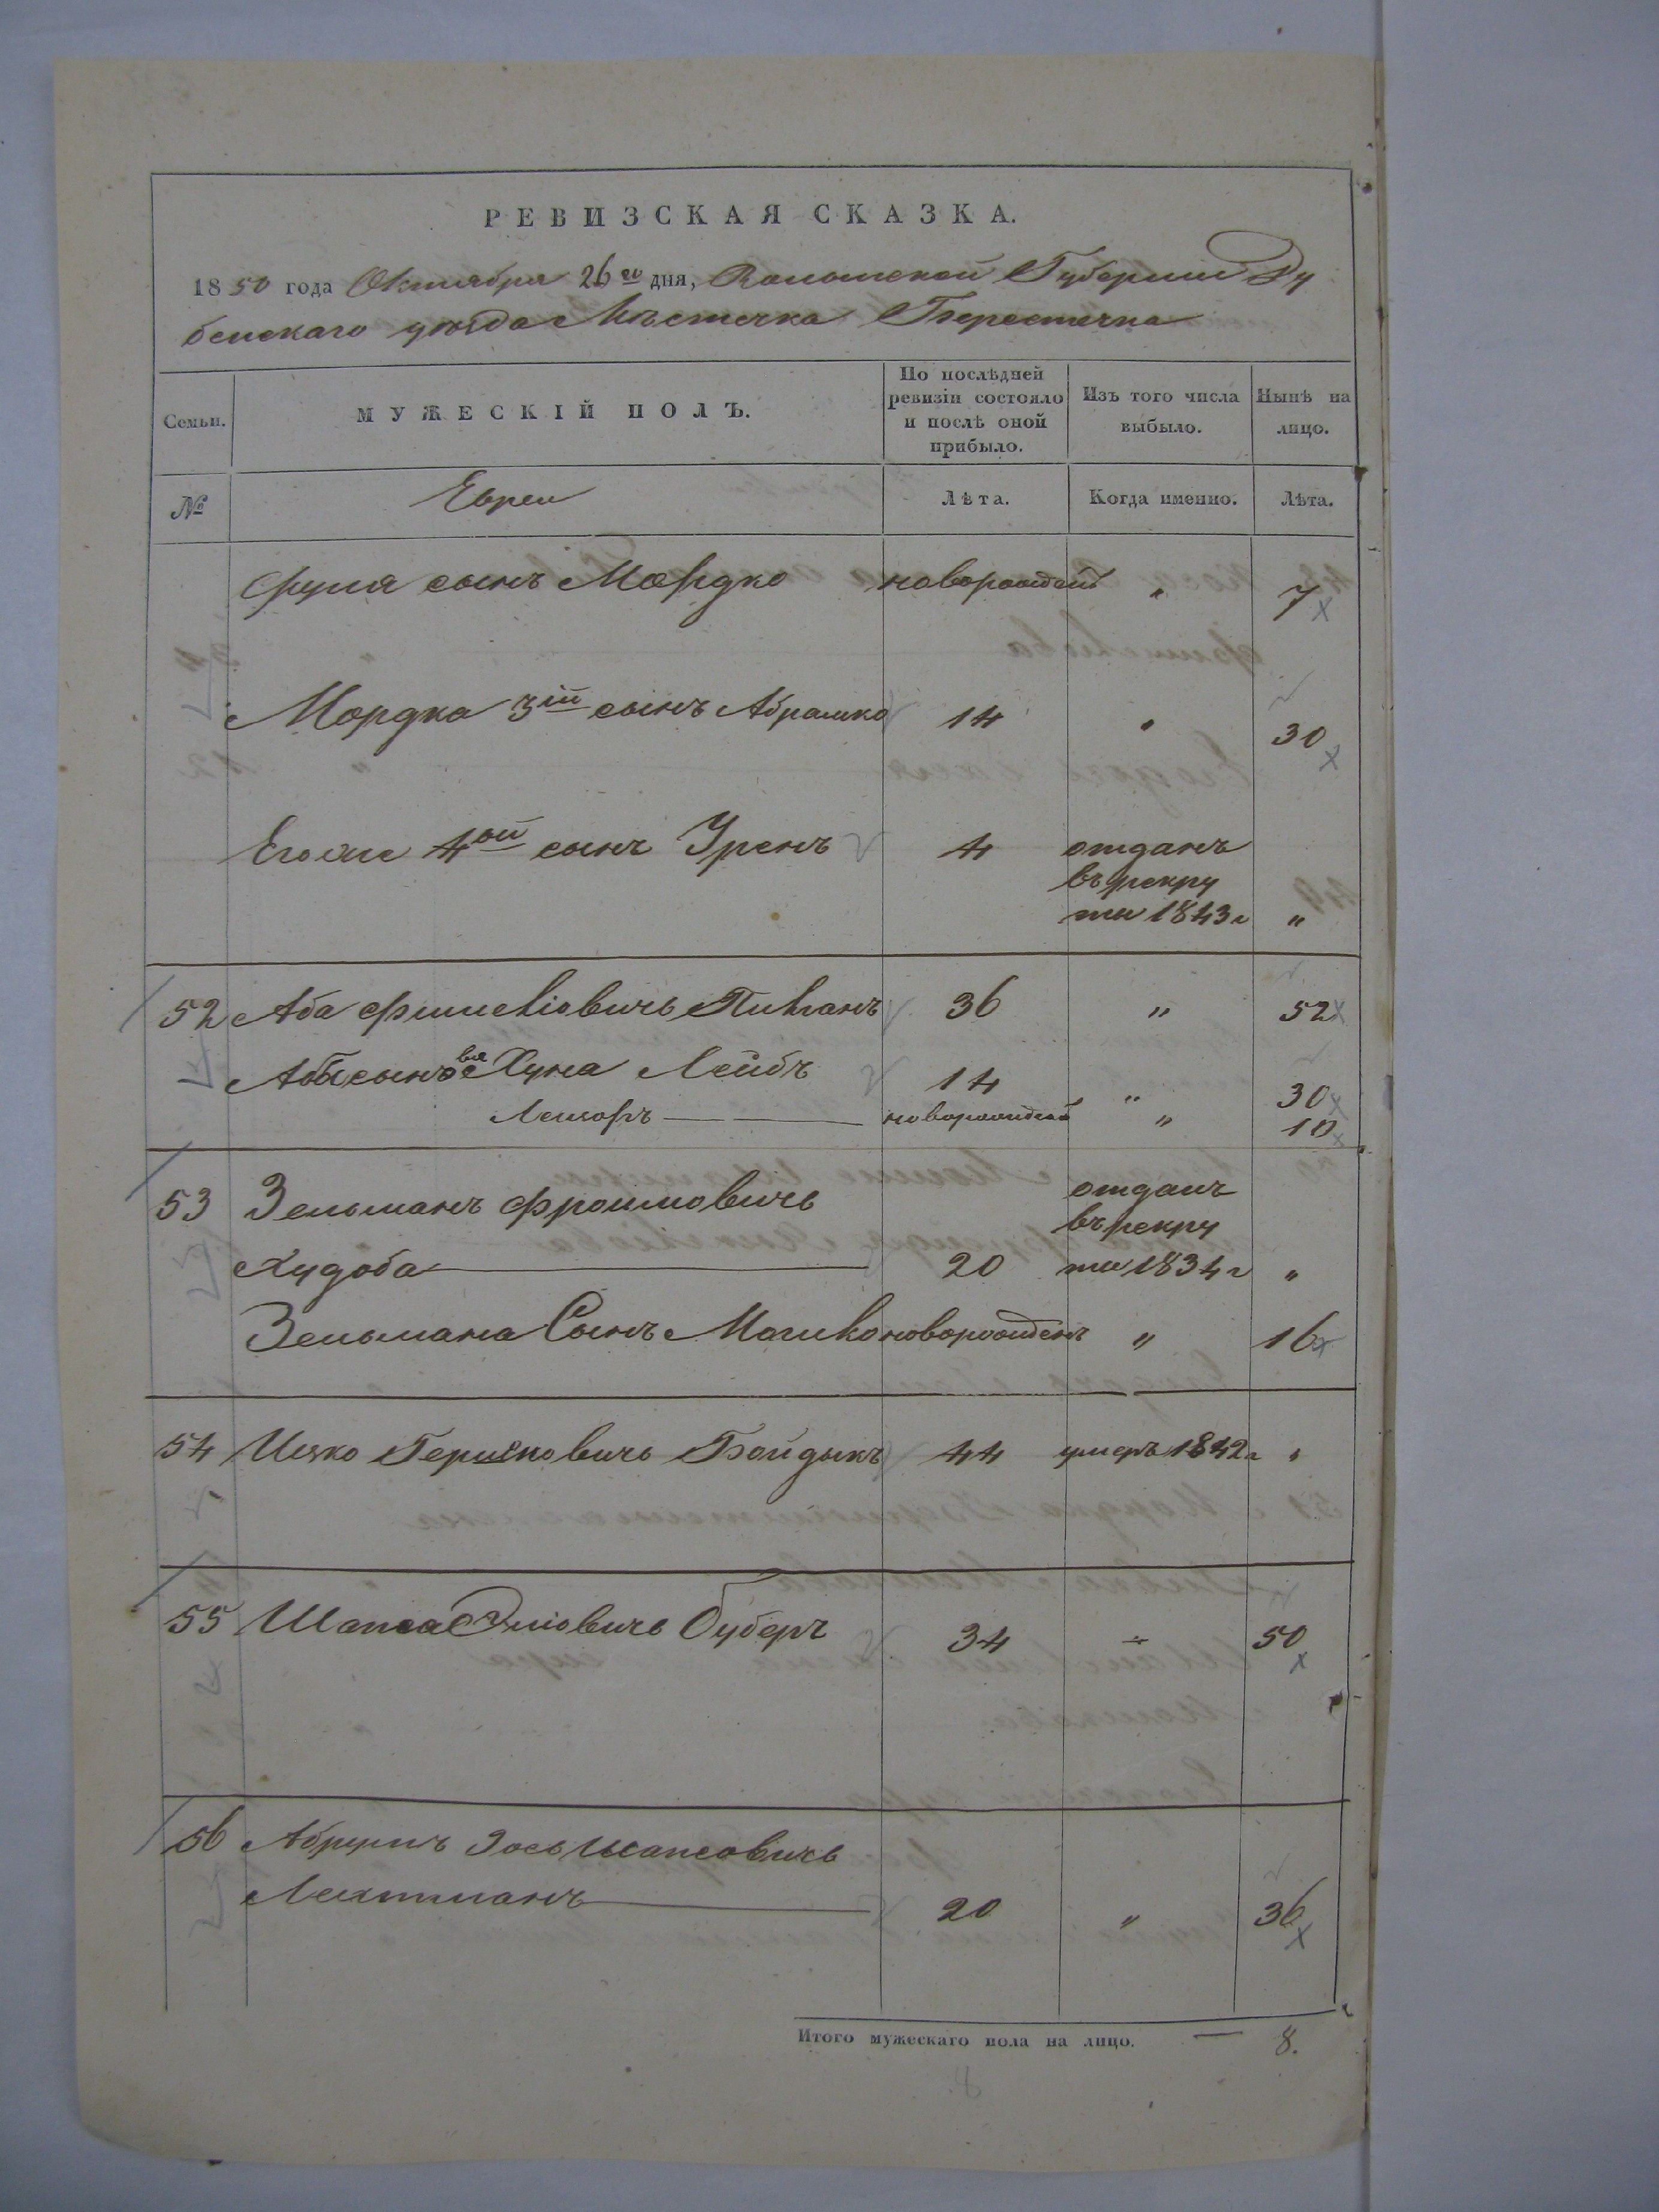 РЕВИЗСКАЯ СКАЗКА.
1850 года Октября 26го дня, Волынской Губернии Ду
бенскаго уѣзда Мѣстечка Берестечка
Семьи. МУЖЕСКІЙ ПОЛЪ. По послѣдней ревизіи состояло и послѣ оной прибыло. Изъ того числа выбыло. Нынѣ на лицо.
№ Евреи Лѣта. Когда именно. Лѣта.
сынъ Мордко новорожден „ 7
Мордка 3ій сынъ Абрамко 14 „ 30
Егоже 4ой сынъ 4 отданъ
въ рекру
ты 1843г „
52 Аба 36 „ 52
Абы сыновя Хуна Лейбъ 14 „ 30
новорожден „ 10
53 Зельманъ Фроимовичь отданъ
въ рекру
Худоба 20 ты 1834г „
Зельмана Сынъ Мошко новорожденъ „ 16
54 Ицко Гершковичь Бойдыкъ 44 умеръ 1842г „
55 Шапса 34 50
56 Шапсовичь
Лехтманъ 20 „ 36
Итого мужескаго пола на лицо. — 8.
8.